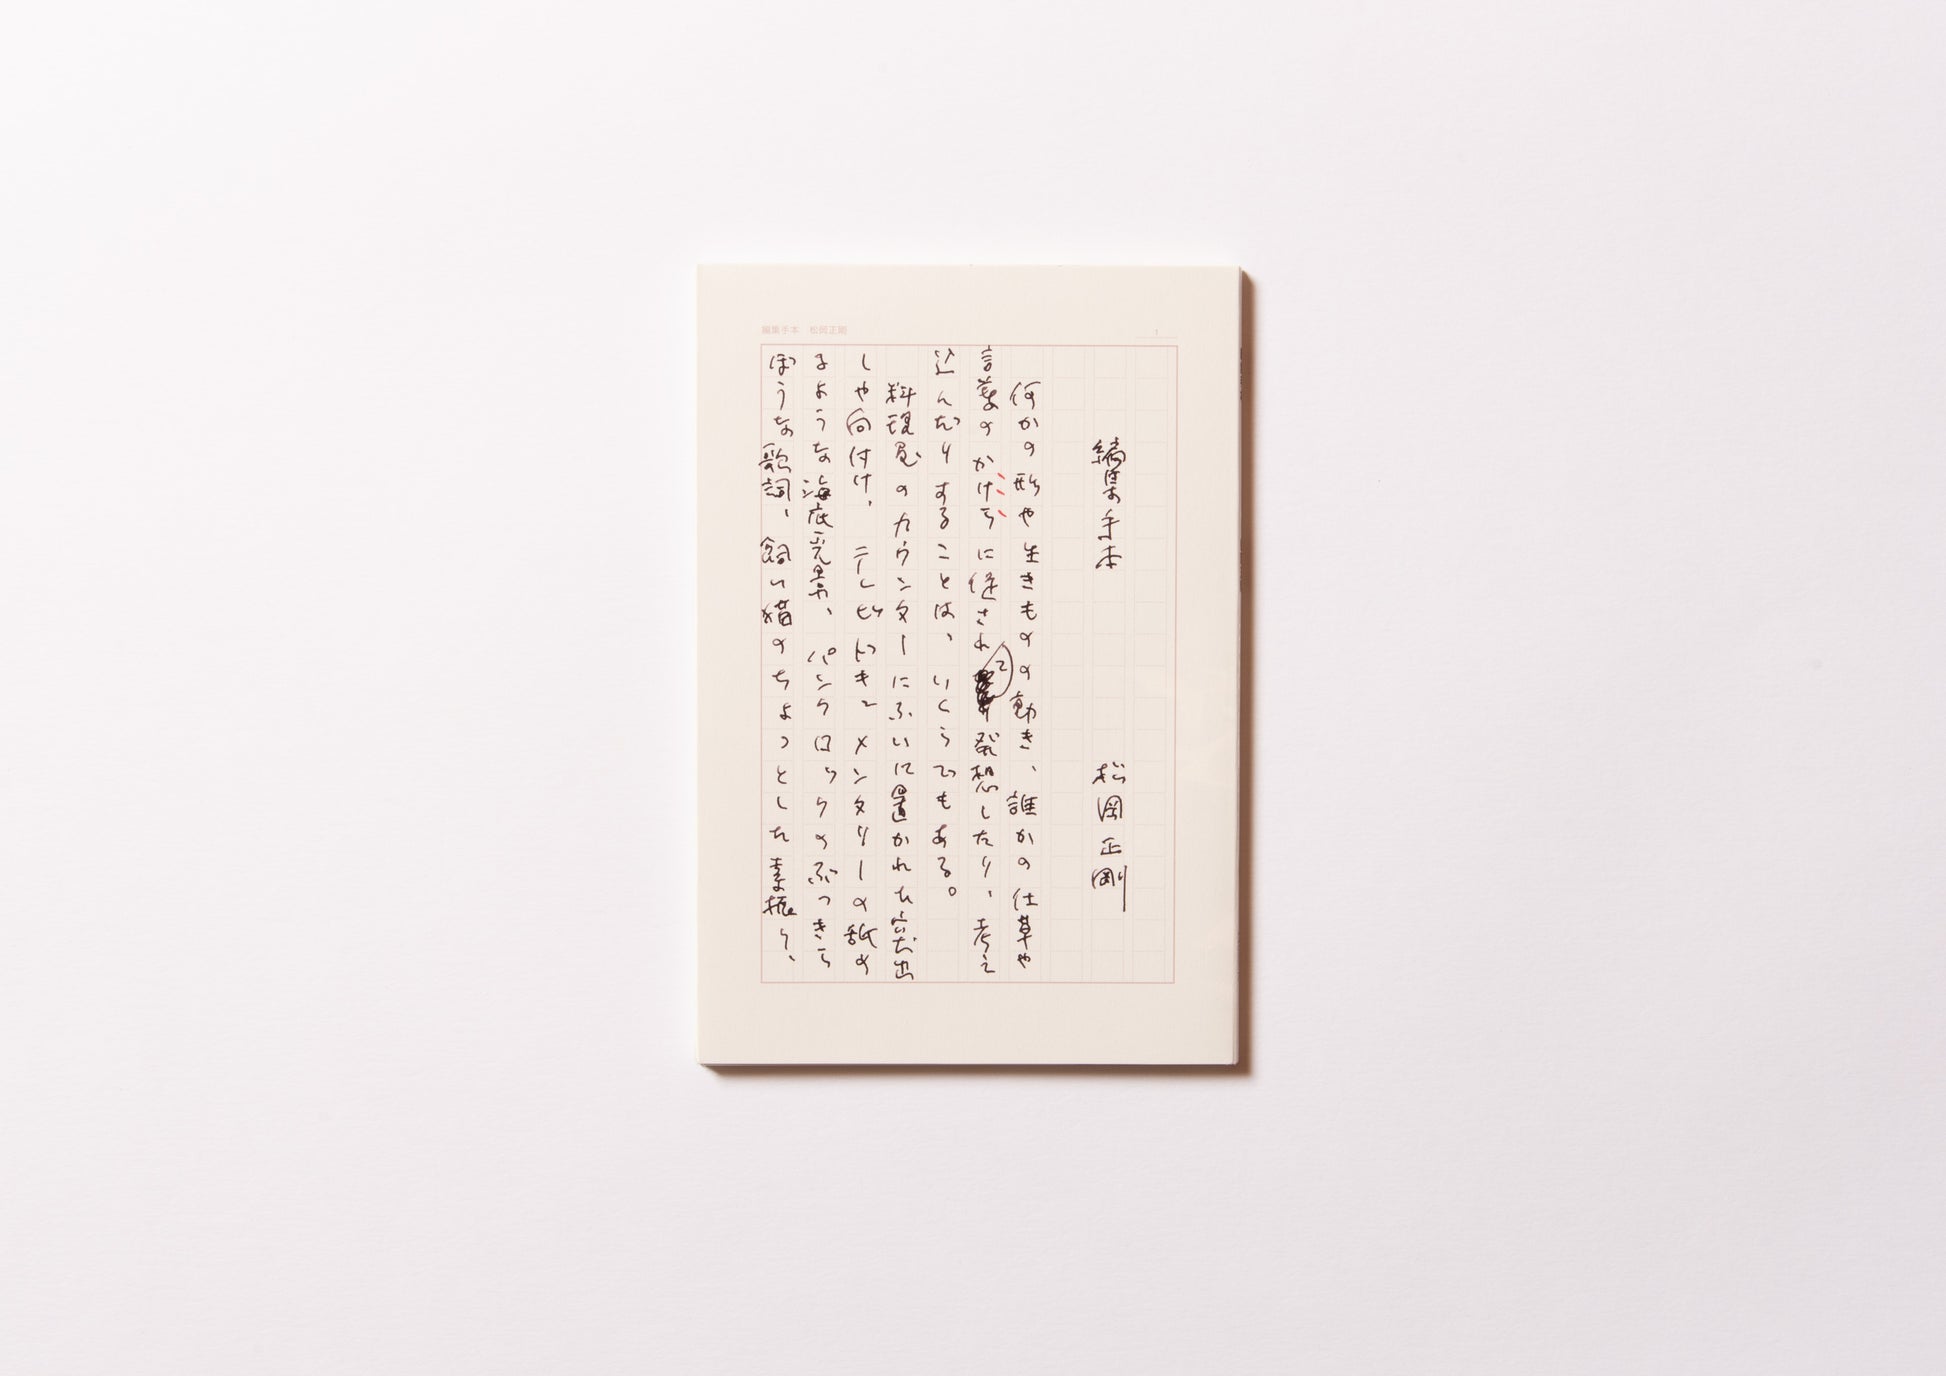 編集手本　松岡正剛
1
編集手本　松岡正剛
何かの形や生きものの動き、誰かの仕草や
言葉のかけらに促されて発想したり、考え
込んだりすることは、いくらでもある。
料理屋のカウンターにふいに置かれた突出
しや向付け、テレビドキュメンタリーの舐め
るような海底光景、パンクロックのぶっきら
ぼうな歌詞、飼い猫のちょっとした素振り、